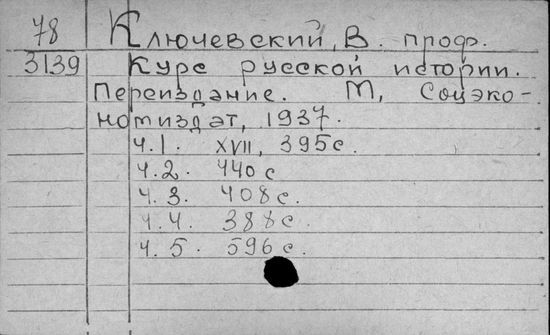 78 Ключевский, В. проф.
3139 Курс русской истории.
Переиздание. М, Соцэко-
номиздат, 1937.
ч.1. XVII, 395с.
ч.2. 440с
ч.3. 408с.
ч.4. 388с
ч.5. 596с.